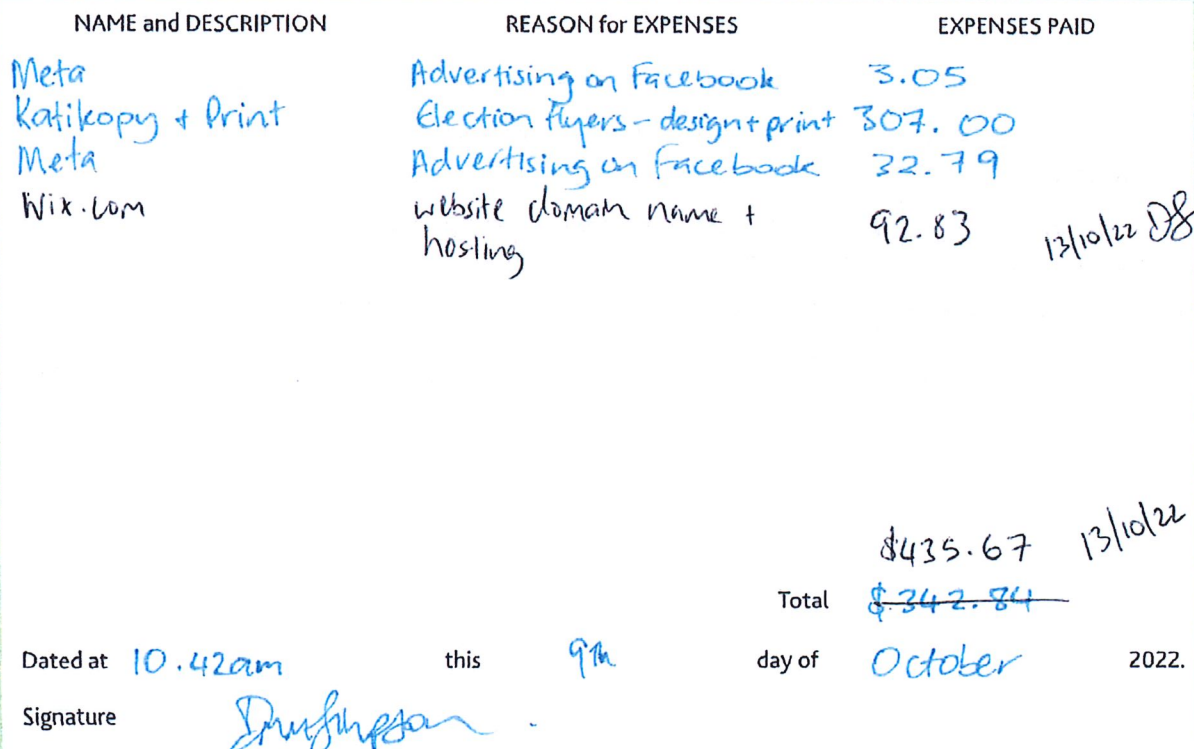 NAME and DESCRIPTION REASON for EXPENSES EXPENSES PAID
Meta Advertising on Facebook 3.05
Katikopy + Print Election flyers - design + print 307.00
Meta Advertising on Facebook 32.79
Wix.com website domain name + 92.83 13/10/22 DS
hosting
$435.67 13/10/22
Total $342.84
Dated at 10.42am this 9th day of October 2022.
Signature